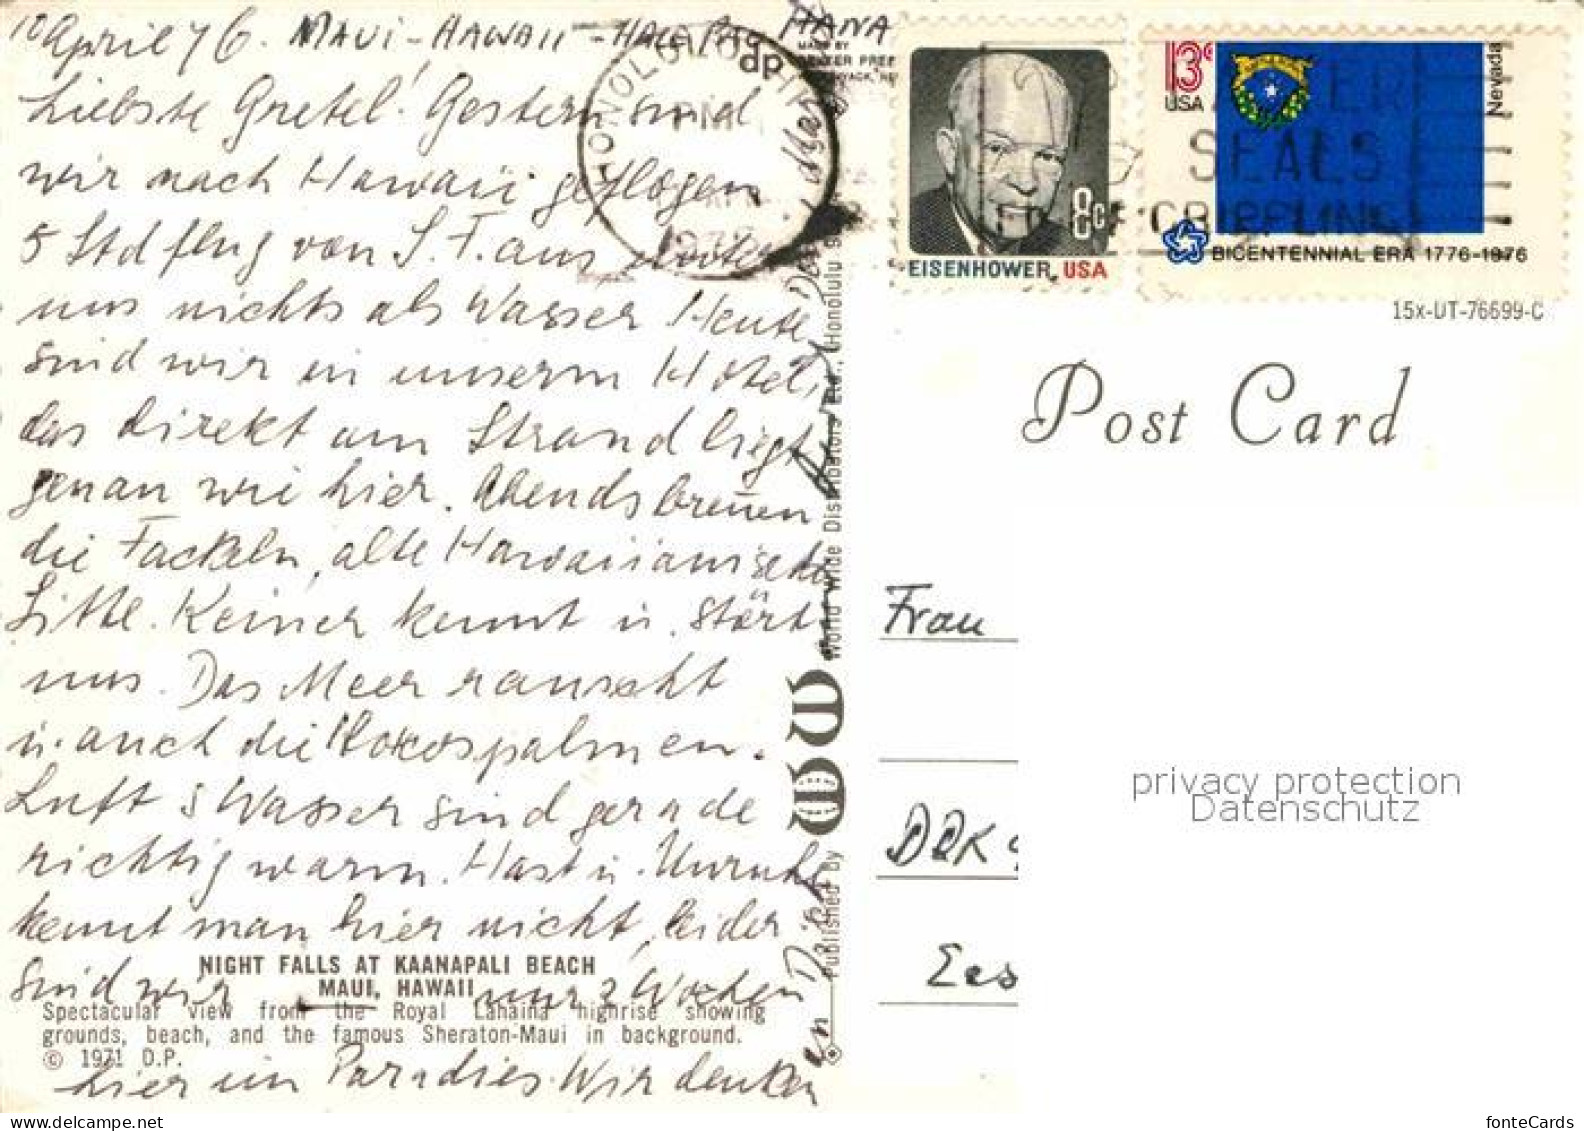 10 April 76. MAUI - HAWAII - HANA
Liebste Gretel! Gestern sind
wir nach Hawaii geflogen
5 Std flug von S. F. aus unter
uns nichts als Wasser Heute
sind wir in unserm Hotel,
das direkt am Strand liegt
genau wie hier. Abends brennen
die Fackeln, alte Hawaiianische
Sitte. Keiner kennt u. stört
uns. Das Meer rauscht
u. auch die Kokospalmen.
Luft & Wasser sind gerade
richtig warm. Hast u. Unruhe
kennt man hier nicht, leider
NIGHT FALLS AT KAANAPALI BEACH
sind wir nur 2 Wochen
MAUI, HAWAII
Spectacular view from the Royal Lahaina highrise showing
grounds, beach, and the famous Sheraton-Maui in background.
© 1971 D.P.
hier im Paradies. Wir denken
an Dich
Published by
World Wide Distributors Ltd., Honolulu
HONOLULU
PM
dp
MADE BY
DEXTER PRESS
8c
EISENHOWER, USA
13c
USA
Nevada
BICENTENNIAL ERA 1776-1976
SEALS
CRIPPLING
15x-UT-76699-C
Post Card
Frau
DRK
Ees
privacy protection
Datenschutz
fonteCards